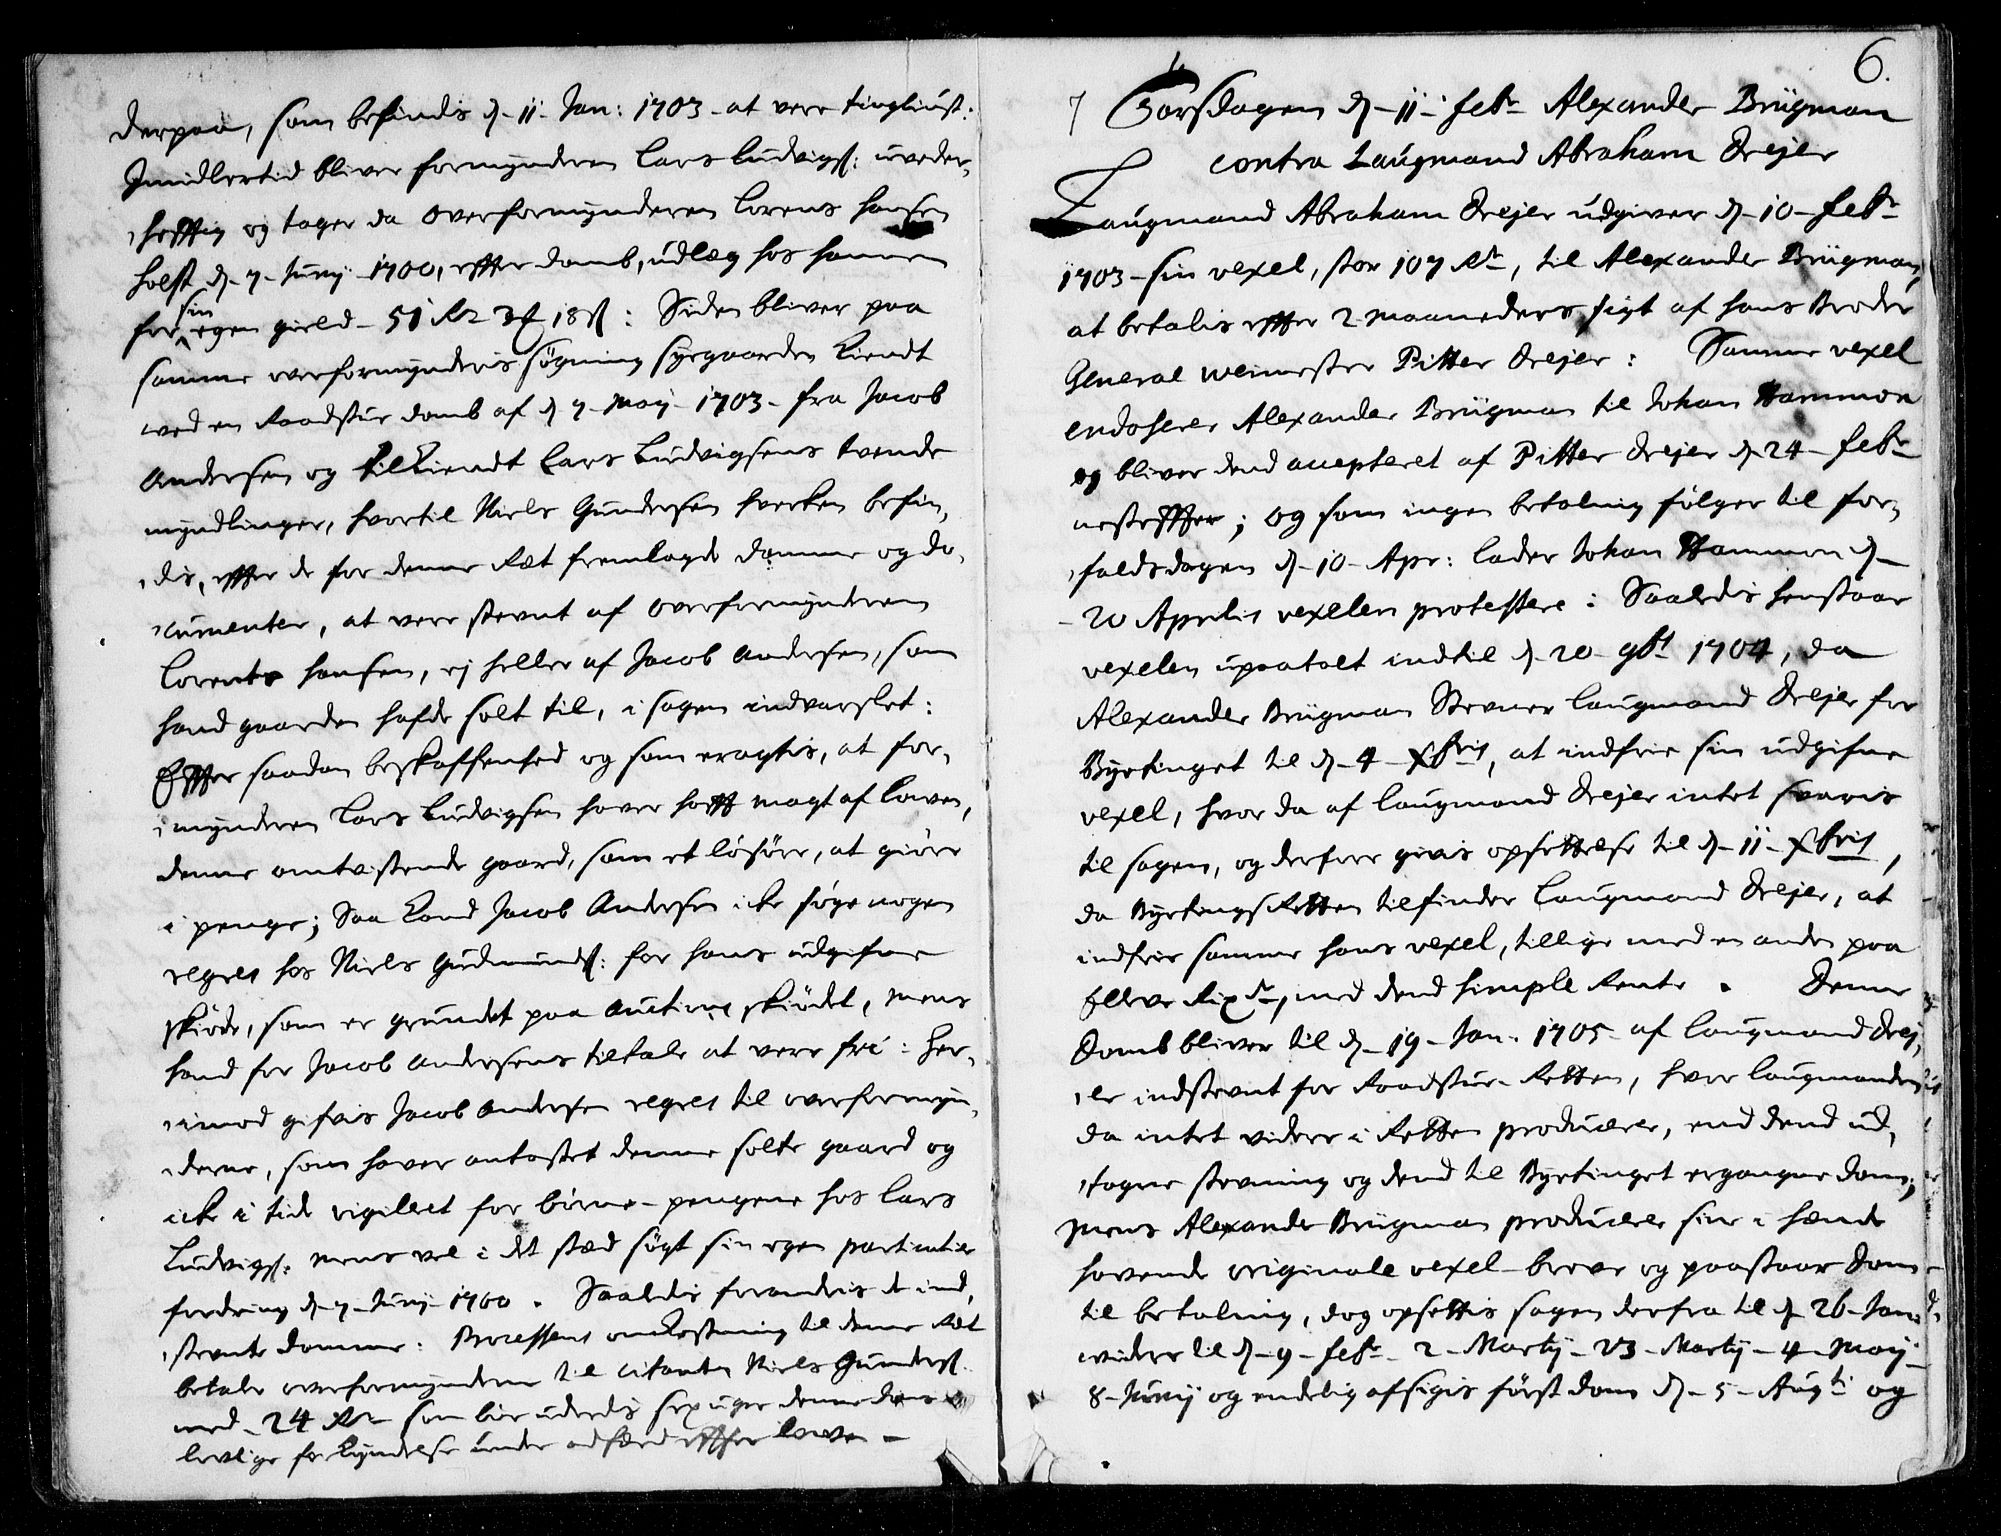 derpaa, som befindis d. 11 Jan: 1703 at vere tingliust:
Jmidlertid bliver formynderen Lars Ludvigs: uveder-
hefftig og tager da overformynderen Lorens Hansen
Holst d. 7 Juny 1700, effter domb, udlæg hos hannem
for sin egen gield 51 Rdr 3 18 s: Siden bliver paa
samme overformynderis søgning hyrgaarden kiendt
wed en Raadstue domb af d. 7 Maij 1703 fra Jacob
Andersen og tilkiendt Lars Ludvigsens tvende
myndlinger, hvortil Niels Gundersen hverken befin-
dis, effter de for denne Ræt fremlagde domme og do-
cumenter, at vere stevnt af overformynderen
Lorents Hansen, ej heller af Jacob Andersen, som
hand gaarden hafde solt til, i sagen indvarslet:
Effter saadan beskaffenhed og som eragtis, at for-
mynderen Lars Ludvigsen haver hafft magt af Lowen,
denne omtvistende gaard, som et løsøre, at giøre
i penge; Saa kand Jacob Andersen icke søge nogen
regres hos Niels Gudmunds: for hans udgifne
skiøde, som er grundet paa auctions skiødet, mens
hand for Jacob Andersens tiltale at vere fri: Her-
imod gifvis Jacob Andersen regres til overformyn-
derne, som haver antastet denne solte gaard og
icke i tide vigileret for børne-pengene hos Lars
Ludvigs: mens vel i det sted søgt sin egen particulier
fordring d. 7 Juny 1700. Saaledis forandris de ind-
stevnte domme: Processens omkostning til denne Ræt
betale overformynderne til citanten Niels Gunders:
med 24 Rdr som bør uderedis sex uger denne doms
lovlige forkyndelse under adfærd effter Lowen
6.
7 Torsdagen d. 11 Febr. Alexander Brügman
contra Laugmand Abraham Drejer
Laugmand Abraham Drejer udgiver d. 10 Febr.
1703 sin vexel, stor 107 Rdr, til Alexander Brügman,
at betalis effter 2 maaneders sigt af hans Broder
General weimester Pitter Drejer: Samme vexel
endosserer Alexander Brügman til Johan Hammon
og bliver dend accepteret af Pitter Drejer d. 24 Febr.
nesteffter; og som ingen betaling følger til for-
faldsdagen d. 10 Apr: lader Johan Hammon d.
20 Aprilis vexelen protestere: Saaledis henstaar
vexelen upaatalt indtil d. 20 9br 1704, da
Alexander Brügman Stevner Laugmand Drejer for
Byetinget til d. 4 Xbris, at indfrie sin udgifne
vexel, hvor da af Laugmand Drejer intet svaris
til sagen, og derfore givis opsettelse til d. 11 Xbris,
da Byetings Retten tilfinder Laugmand Drejer, at
indfrie samme hans vexel, tillige med en anden paa
Elleve Rixdr, med dend simple Rente. Denne
Domb bliver til d. 19 Jan. 1705 af Laugmand Drej-
er indstevnt for Raadstue-Retten, hvor Laugmanden
da intet videre i Retten producerer, end dend ud-
tagne stevning og dend til Byetinget ergangne dom;
mens Alexander Brügman producerer sine i hænde
havende originale vexel-breve og paastaar Dom
til betaling, dog opsettis sagen derfra til d. 26 Jan:
widere til d. 9 Febr. 2 Martij 23 Martij 4 Maij
8 Junij og endelig afsigis først dom d. 5 Augti og